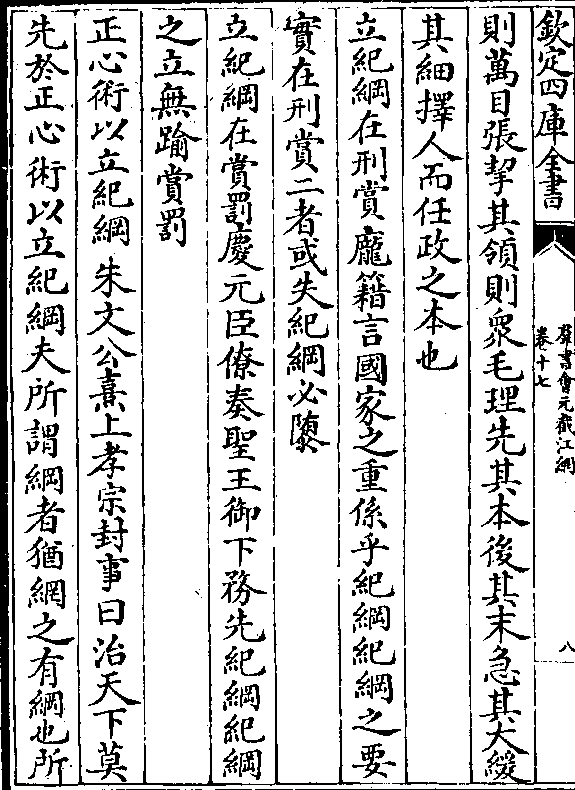 欽定四庫全書
羣書會元截江網
卷十七
八
則萬目張挈其領則衆毛理先其本後其末急其大緩
其細擇人而任政之本也
立紀綱在刑賞龐籍言國家之重係乎紀綱紀綱之要
實在刑賞二者或失紀綱必隳
立紀綱在賞罰慶元臣僚奏聖王御下務先紀綱紀綱
之立無踰賞罰
正心術以立紀綱朱文公熹上孝宗封事曰治天下莫
先於正心術以立紀綱夫所謂綱者猶網之有綱也所